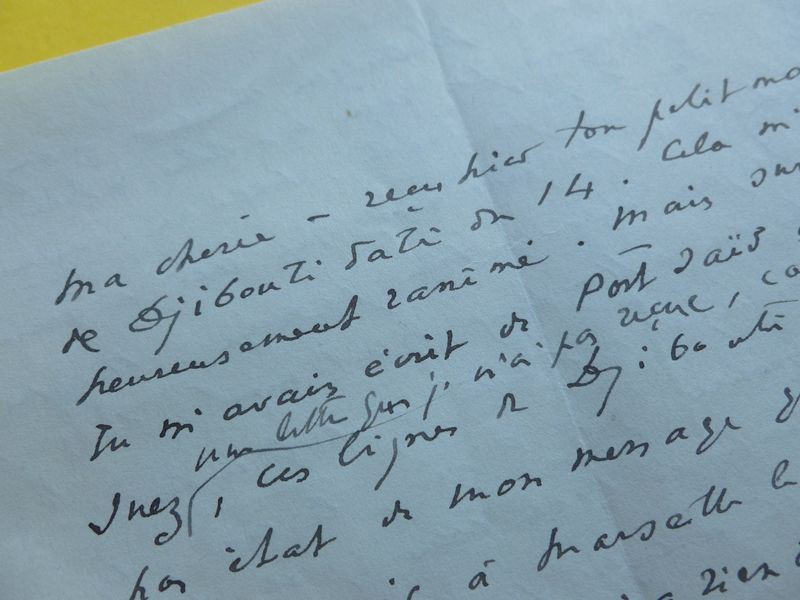 ma chérie – reçu hier ton petit mo
de Djibouti daté du 14. Cela m'
heureusement ranimé. Mais sur
Tu m'avais écrit de Port Saïd
une lettre que j. n'ai pas reçue, ca
Inez, ces lignes de Djibouti
pas état de mon message q
à Marseille le
rien